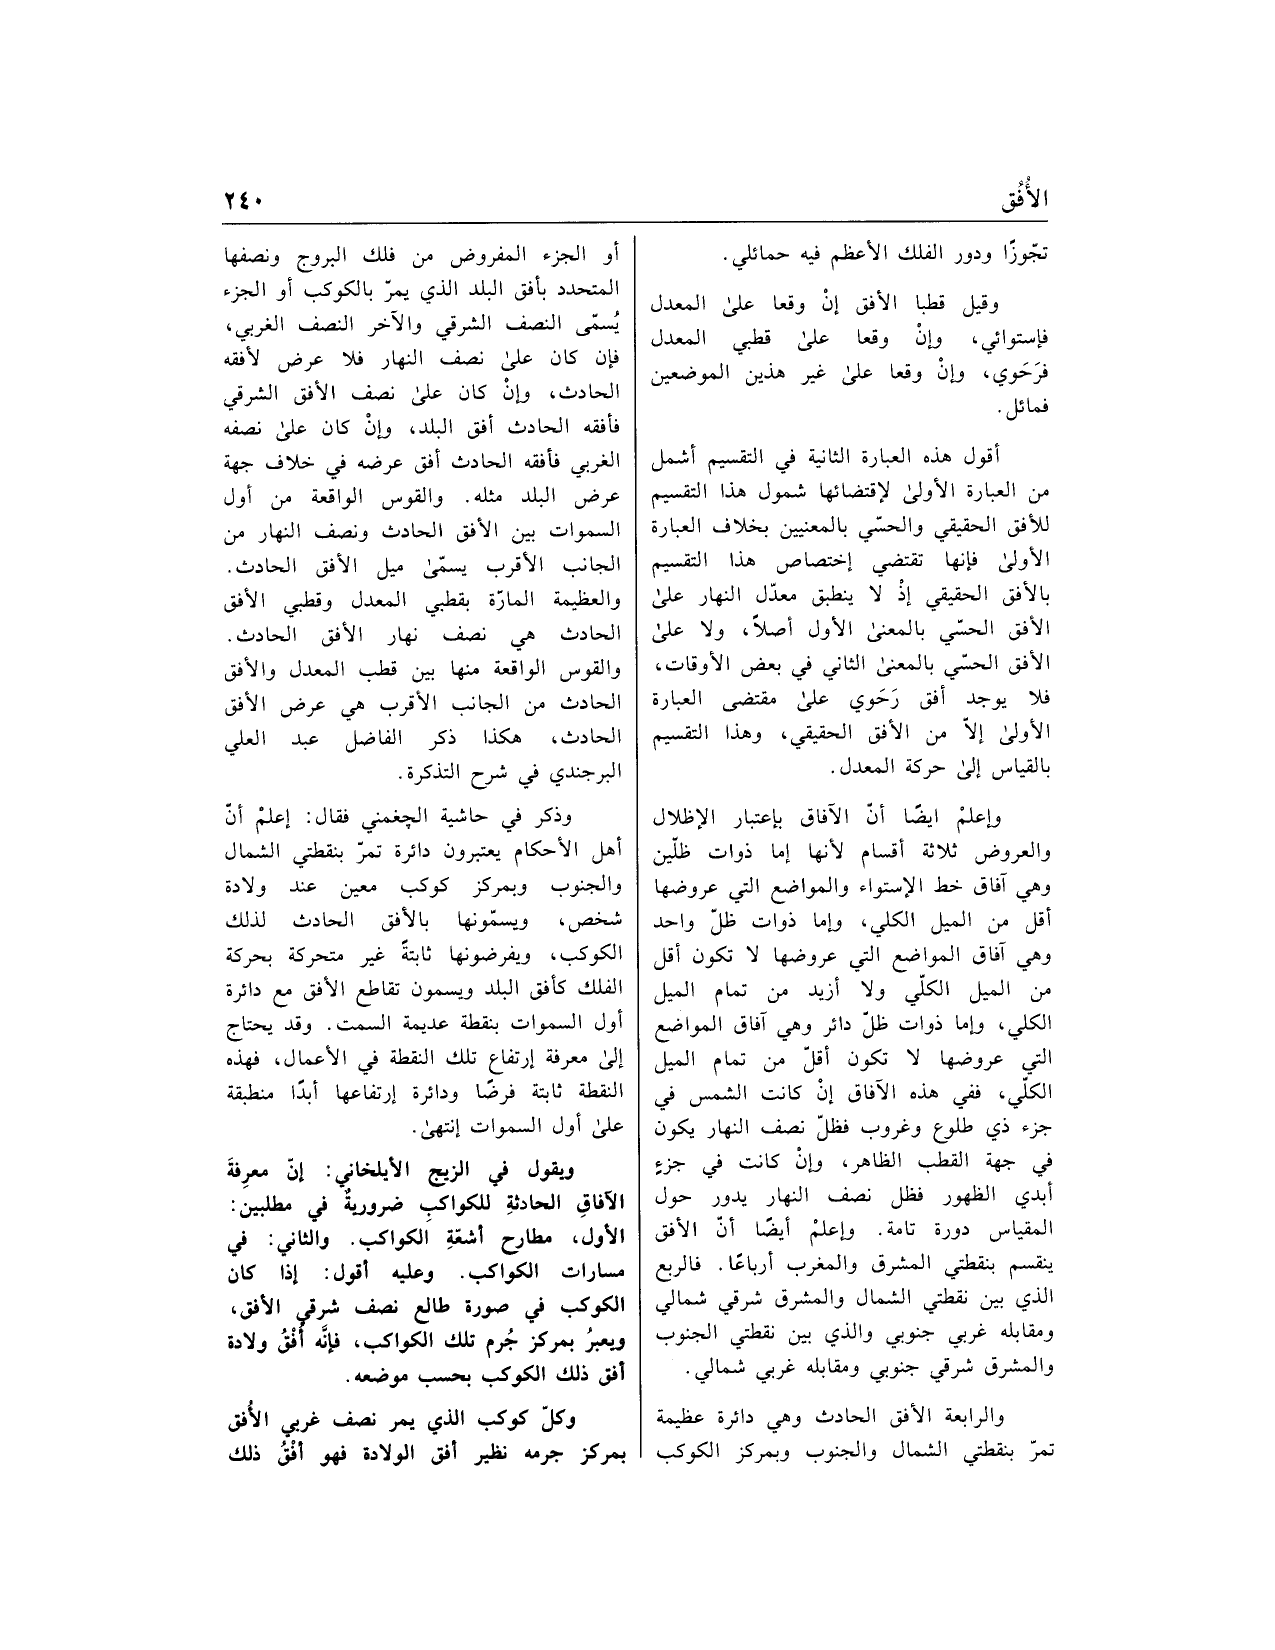 الأُفُق
٢٤٠
تجّوزًا ودور الفلك الأعظم فيه حمائلي.
وقيل قطبا الأفق إنْ وقعا علىٰ المعدل
فإستوائي، وإنْ وقعا علىٰ قطبي المعدل
فرَحَوي، وإنْ وقعا علىٰ غير هذين الموضعين
فمائل.
أقول هذه العبارة الثانية في التقسيم أشمل
من العبارة الأولىٰ لإقتضائها شمول هذا التقسيم
للأفق الحقيقي والحسّي بالمعنيين بخلاف العبارة
الأولىٰ فإنها تقتضي إختصاص هذا التقسيم
بالأفق الحقيقي إذْ لا ينطبق معدّل النهار علىٰ
الأفق الحسّي بالمعنىٰ الأول أصلاً، ولا علىٰ
الأفق الحسّي بالمعنىٰ الثاني في بعض الأوقات،
فلا يوجد أفق رَحَوي علىٰ مقتضى العبارة
الأولىٰ إلاّ من الأفق الحقيقي، وهذا التقسيم
بالقياس إلىٰ حركة المعدل.
وإعلمْ ايضًا أنّ الآفاق بإعتبار الإظلال
والعروض ثلاثة أقسام لأنها إما ذوات ظلّين
وهي آفاق خط الإستواء والمواضع التي عروضها
أقل من الميل الكلي، وإما ذوات ظلّ واحد
وهي آفاق المواضع التي عروضها لا تكون أقل
من الميل الكلّي ولا أزيد من تمام الميل
الكلي، وإما ذوات ظلّ دائر وهي آفاق المواضع
التي عروضها لا تكون أقلّ من تمام الميل
الكلّي، ففي هذه الآفاق إنْ كانت الشمس في
جزء ذي طلوع وغروب فظلّ نصف النهار يكون
في جهة القطب الظاهر، وإنْ كانت في جزءٍ
أبدي الظهور فظل نصف النهار يدور حول
المقياس دورة تامة. وإعلمْ أيضًا أنّ الأفق
ينقسم بنقطتي المشرق والمغرب أرباعًا. فالربع
الذي بين نقطتي الشمال والمشرق شرقي شمالي
ومقابله غربي جنوبي والذي بين نقطتي الجنوب
والمشرق شرقي جنوبي ومقابله غربي شمالي.
والرابعة الأفق الحادث وهي دائرة عظيمة
تمرّ بنقطتي الشمال والجنوب وبمركز الكوكب
أو الجزء المفروض من فلك البروج ونصفها
المتحدد بأفق البلد الذي يمرّ بالكوكب أو الجزء
يُسمّى النصف الشرقي والآخر النصف الغربي،
فإن كان علىٰ نصف النهار فلا عرض لأفقه
الحادث، وإنْ كان علىٰ نصف الأفق الشرقي
فأفقه الحادث أفق البلد، وإنْ كان علىٰ نصفه
الغربي فأفقه الحادث أفق عرضه في خلاف جهة
عرض البلد مثله. والقوس الواقعة من أول
السموات بين الأفق الحادث ونصف النهار من
الجانب الأقرب يسمّىٰ ميل الأفق الحادث.
والعظيمة المارّة بقطبي المعدل وقطبي الأفق
الحادث هي نصف نهار الأفق الحادث.
والقوس الواقعة منها بين قطب المعدل والأفق
الحادث من الجانب الأقرب هي عرض الأفق
الحادث، هكذا ذكر الفاضل عبد العلي
البرجندي في شرح التذكرة.
وذكر في حاشية الچغمني فقال: إعلمْ أنّ
أهل الأحكام يعتبرون دائرة تمرّ بنقطتي الشمال
والجنوب وبمركز كوكب معين عند ولادة
شخص، ويسمّونها بالأفق الحادث لذلك
الكوكب، ويفرضونها ثابتةً غير متحركة بحركة
الفلك كأفق البلد ويسمون تقاطع الأفق مع دائرة
أول السموات بنقطة عديمة السمت. وقد يحتاج
إلىٰ معرفة إرتفاع تلك النقطة في الأعمال، فهذه
النقطة ثابتة فرضًا ودائرة إرتفاعها أبدًا منطبقة
علىٰ أول السموات إنتهىٰ.
ويقول في الزيج الأيلخاني: إنّ معرفةَ
الآفاقِ الحادثةِ للكواكبِ ضروريةٌ في مطلبين:
الأول، مطارح أشعّةِ الكواكب. والثاني: في
مسارات الكواكب. وعليه أقول: إذا كان
الكوكب في صورة طالع نصف شرقي الأفق،
ويعبرُ بمركز جُرم تلك الكواكب، فإنَّه أُفْقُ ولادة
أفق ذلك الكوكب بحسب موضعه.
وكلّ كوكب الذي يمر نصف غربي الأُفق
بمركز جرمه نظير أفق الولادة فهو أفْقُ ذلك